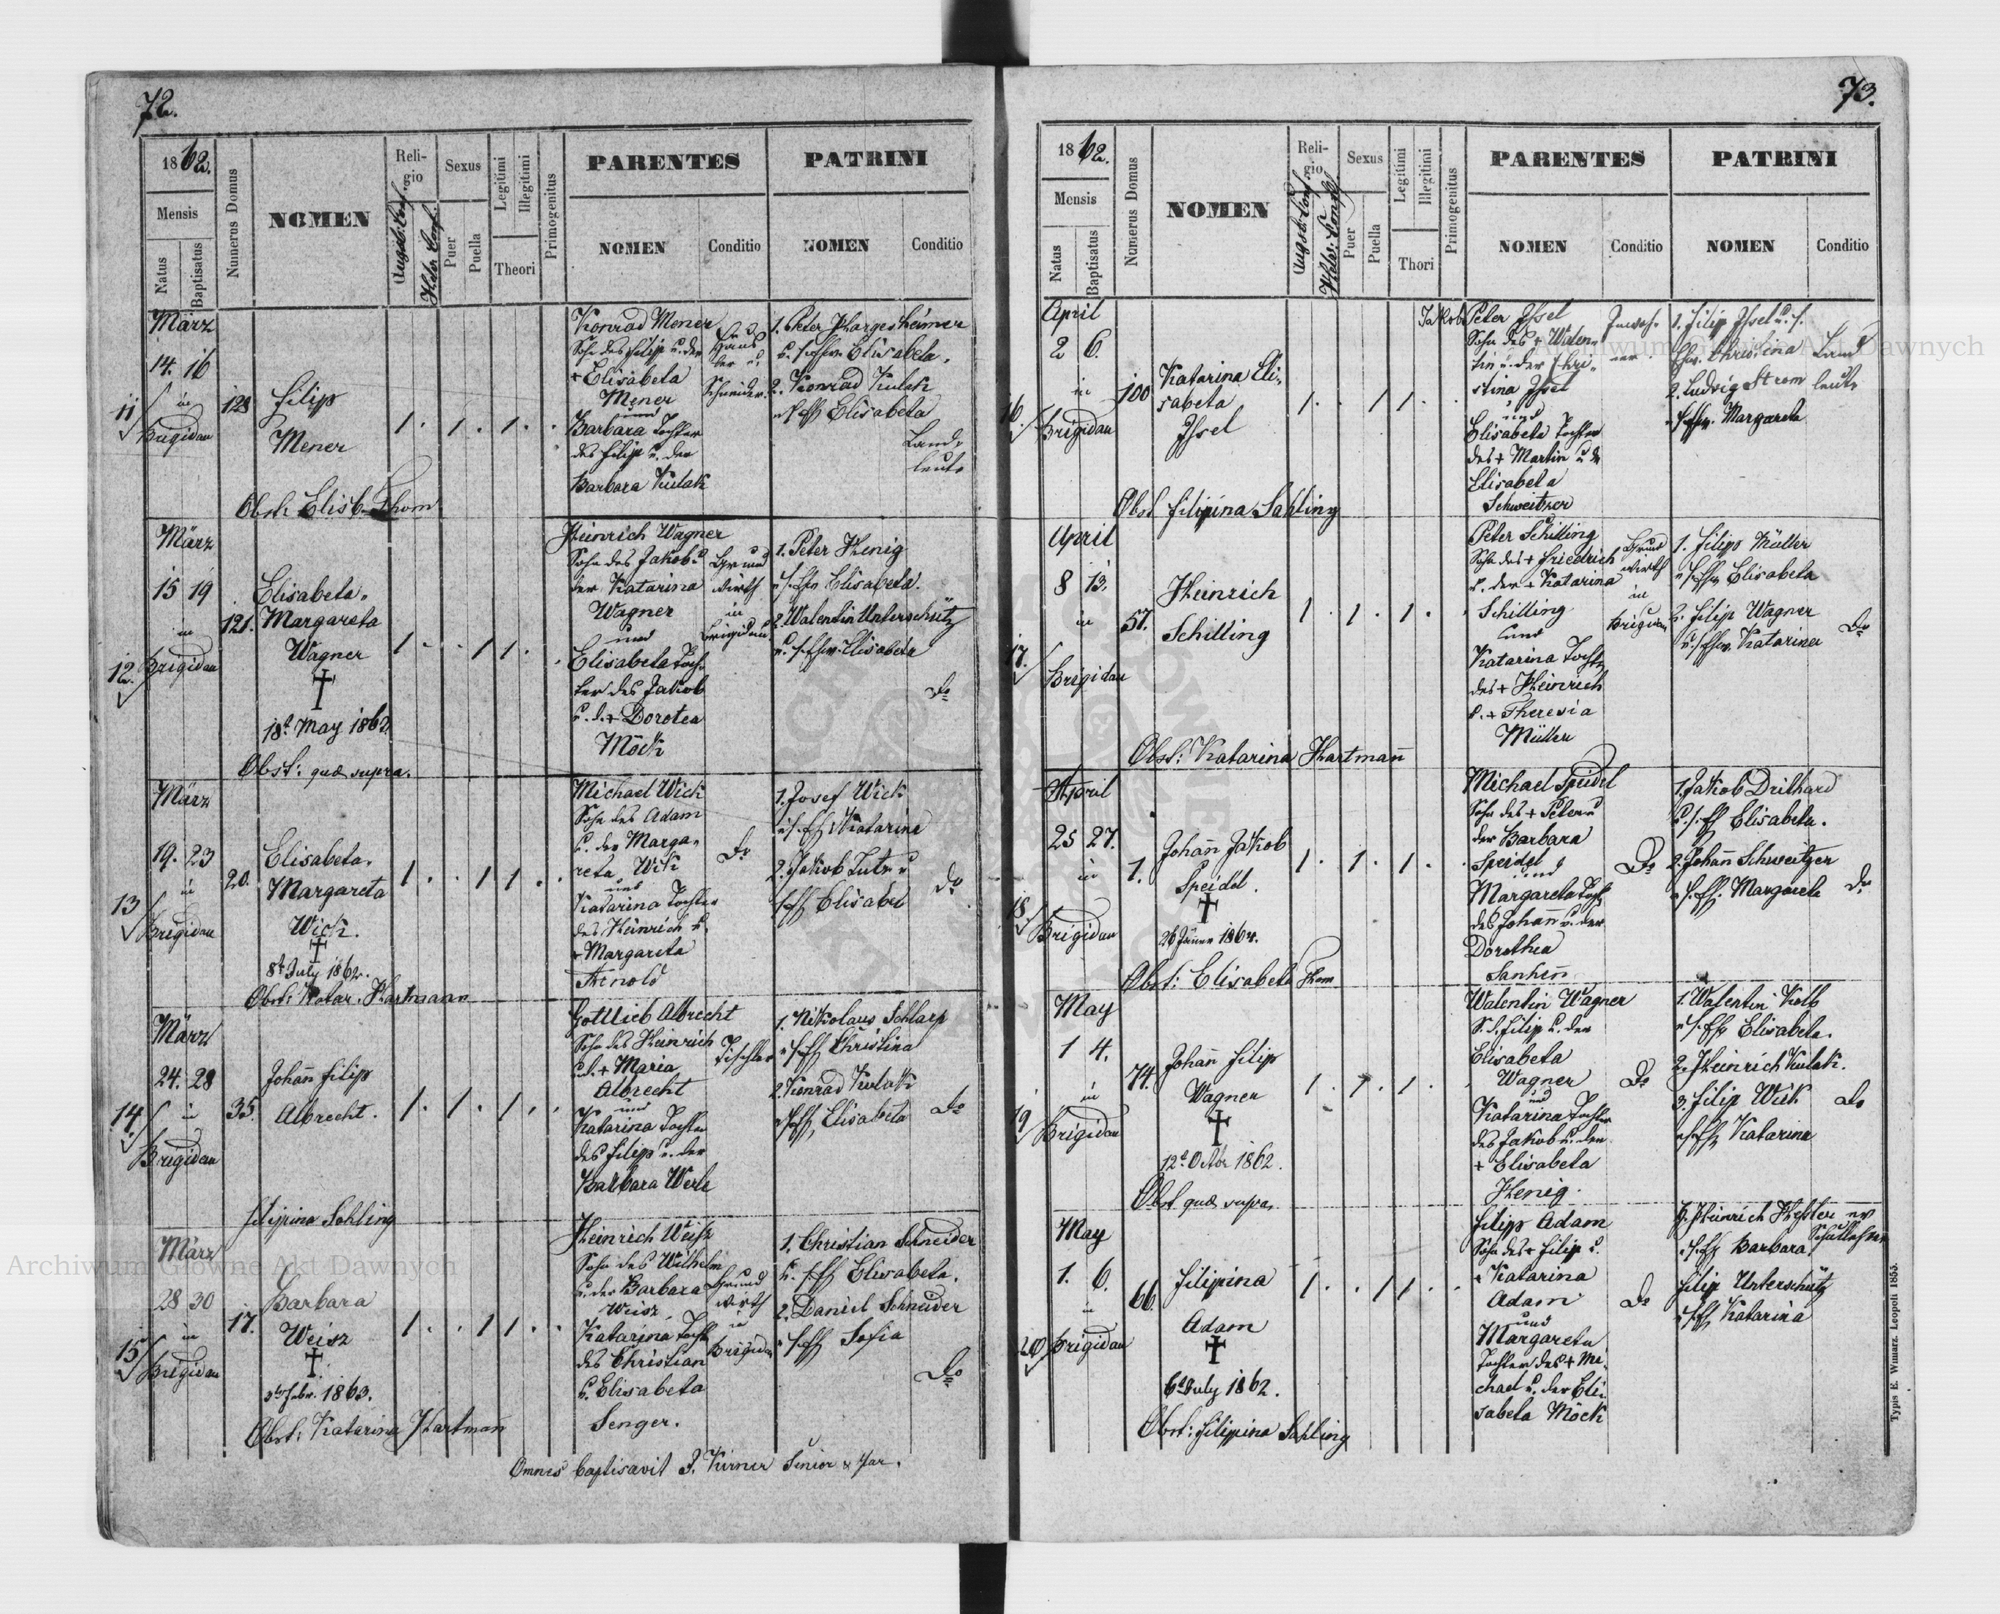 72.
1862.
Mensis
Natus
Baptisatus
Numerus Domus
NOMEN
Religio
Augsb. Conf.
Helv. Conf.
Sexus
Puer
Puella
Legitimi
Illegitimi
Theori
Primogenitus
PARENTES
NOMEN
Conditio
PATRINI
NOMEN
Conditio
März
14. 16
in
Brigidau
11
128
Filip
Mener
1 . 1 . 1 .
Konrad Mener
Sohn des Filip u. der
+ Elisabeta
Mener
und
Barbara Tochter
des Filip u. der
Barbara Kulak
Schneider
1. Peter Hargesheimer
u. s. Ehw. Elisabeta.
2. Konrad Kulak
Elisabeta
Land-
leute
Obst: Elisb. Thom
März
15 19
in
Brigidau
12.
121.
Elisabeta
Margareta
Wagner
†
18t May 1862
1 . . 1 1 .
Heinrich Wagner
Sohn des Jakob u
der Katarina
Wagner
und
Elisabeta Toch-
ter des Jakob
u. d. + Dorotea
Möck
Grund
wirth
in
Brigidau
1. Peter Henig
Elisabeta.
2. Walentin Unterschütz
u. s. Ehw. Elisabeta
Do
Obst: quæ supra.
März
19. 23
in
Brigidau
13
20.
Elisabeta
Margareta
Wick.
†
8t July 1862.
1 . . 1 1 .
Michael Wick
Sohn des Adam
u. der Marga-
reta Wick
und
Katarina Tochter
des Heinrich u.
+ Margareta
Arnold
Do
1. Josef Wick
Katarina
2. Jakob
Elisabet
Do
Obst: Katar. Hartmann
März
24. 28
in
Brigidau
14.
35.
Johan̄ Filip
Albrecht.
1 . 1 . 1 .
Gottlieb Albrecht
Sohn des Heinrich
u. d. + Maria
Albrecht
und
Katarina Tochter
des Filip u. der
Barbara Werle
Tischler
1. Nikolaus Schlarp
Christina
2. Konrad Kulak
Elisabeta
Do
Filipina Sohling
März
28 30
in
Brigidau
15
17.
Barbara
Weisz
†
Febr. 1863.
1 . . 1 1 .
Heinrich Weisz
Sohn des Wilhelm
u. der Barbara
Weisz
Katarina Toch
des Christian
u. Elisabeta
Senger.
Grund
wirth
in
Brigidau
1. Christian Schneider
Elisabeta.
2. Daniel Schneider
Sofia
Do
Obst: Katarina Hartman̄
Omnes baptisavit J. Kirner Senior & Par.
73.
1862.
Mensis
Natus
Baptisatus
Numerus Domus
NOMEN
Religio
Augsb. Conf.
Helv. Conf.
Sexus
Puer
Puella
Legitimi
Illegitimi
Thori
Primogenitus
PARENTES
NOMEN
Conditio
PATRINI
NOMEN
Conditio
April
2 6.
in
Brigidau
16.
100
Katarina Eli-
sabeta
Issel
1 . . 1 1 .
Jakob Peter Issel
Sohn des + Walen-
tin u. der Chri-
stina Issel
und
Elisabeta Tochter
des + Martin u. d
Elisabeta
Schweitzer
Inwoh-
ner
1. Filip Issel u. s.
Ehw. Christina
2. Ludwig Strem
Margareta
Land
leute
Obst Filipina Sahling
April
8 13.
in
Brigidau
17.
57.
Heinrich
Schilling
1 . 1 . 1 .
Peter Schilling
Sohn des + Friedrich
u. der + Katarina
Schilling
und
Katarina Tocht
des + Heinrich
u. + Theresia
Müller
Grund
wirth
in
Brigidau
1. Filip Müller
Elisabeta
2. Filip Wagner
u. s. Ehw. Katarina
Do
Obst: Katarina Hartman̄
April
25 27.
in
Brigidau
18.
1.
Johan̄ Jakob
Speidel.
†
26 Jäner 1864.
1 . 1 . 1 .
Michael Speidel
Sohn des + Peter u
der Barbara
Speidel
und
Margareta Toch
des Johan̄ u. der
Dorothea
Do
1. Jakob Drithard
Elisabeta.
2. Johan̄ Schweitzer
Margareta
Do
Obst: Elisabeta Thom
May
1 4.
in
Brigidau
19
74.
Johan̄ Filip
Wagner
†
12t Octbr 1862.
1 . 1 . 1 .
Walentin Wagner
S. d. Filip u. der
Elisabeta
Wagner
und
Katarina Tochter
des Jakob u. der
+ Elisabeta
Henig.
Do
1. Walentin Kolb
Elisabeta.
2. Heinrich Kulak.
3. Filip Wick
Katarina
Do
Obst quæ supra.
May
1. 6.
in
Brigidau
20
66.
Filipina
Adam
†
6t July 1862.
1 . . 1 1 .
Filipp Adam
Sohn des + Filip u.
+ Katarina
Adam
und
Margareta
Tochter des + Mi-
chael u. der Eli-
sabeta Möck
Do
Heinrich
Barbara
Filip Unterschütz
Katarina
Obst: Filippina Sahling
Typis E. Winiarz Leopoli 1855.
Archiwum Główne Akt Dawnych
Archiwum Główne Akt Dawnych